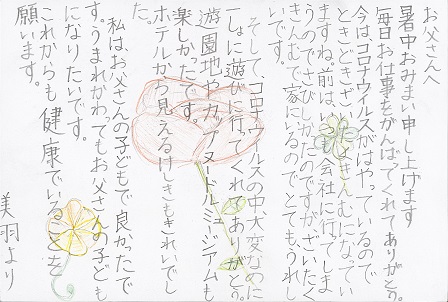 お父さんへ
暑中おみまい申し上げます
毎日お仕事をがんばってくれてありがとう。
今は、コロナウイルスがはやっているので
ときどきざいたくきんむになってい
ますね。前は、いつも会社に行ってしま
うのでさびしかったのですがざいたく
きんむで、家にいるのでとても、うれし
そして、コロナウイルスの中、大変なのに
いっしょに遊びに行ってくれてありがとう。
遊園地やカップヌードルミュージアムも
楽しかったです。
ホテルから見えるけしきもきれいでし
た。
私は、お父さんの子どもで良かったで
す。うまれかわってもお父さんの子ども
になりたいです。
これからも健康でいることを
願います。
美羽より